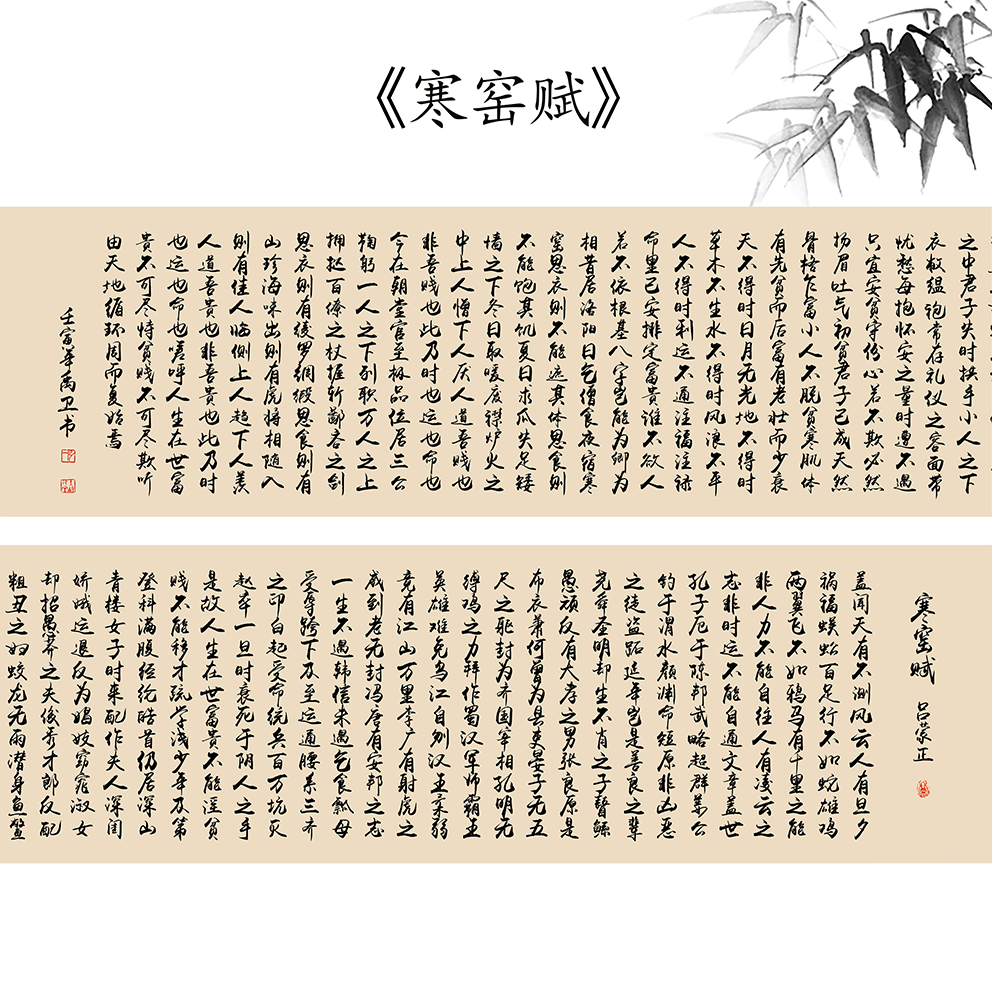 《寒窑赋》
寒窑赋 吕蒙正
盖闻天有不测风云人有旦夕
祸福蜈蚣百足行不如蛇雄鸡
两翼飞不如鸦马有千里之能
非人力不能自往人有凌云之
志非时运不能自通文章盖世
孔子厄于陈邦武略超群姜公
钓于渭水颜渊命短原非凶恶
之徒盗跖延年岂是善良之辈
尧舜圣明却生不肖之子瞽鲧
愚顽反有大孝之男张良原是
布衣萧何曾为县吏晏子无五
尺之躯封为齐国宰相孔明无
缚鸡之力拜作蜀汉军师霸王
英雄难免乌江自刎汉王柔弱
竟有江山万里李广有射虎之
威到老无封冯唐有安邦之志
一生不遇韩信未遇乞食瓢母
受辱胯下及至运通腰系三齐
之印白起受命统兵百万坑灭
赵卒一旦时衰死于阴人之手
是故人生在世富贵不能淫贫
贱不能移才疏学浅少年及第
登科满腹经纶皓首仍居深山
青楼女子时来配作夫人深闺
娇娥运退反为娼妓窈窕淑女
却招愚莽之夫俊秀才郎反配
粗丑之妇蛟龙无雨潜身鱼鳖
之中君子失时拱手小人之下
衣敝缊袍常存礼仪之容面带
忧愁每抱怀安之量时遭不遇
只宜安贫守份心若不欺必然
扬眉吐气初贫君子已成天然
骨格乍富小人不脱贫寒肌体
有先贫而后富有老壮而少衰
天不得时日月无光地不得时
草木不生水不得时风浪不平
人不得时利运不通注福注禄
命里已安排定富贵谁不欲人
若不依根基八字岂能为卿为
相昔居洛阳日乞僧食夜宿寒
窑思衣则不能遮其体思食则
不能饱其饥夏日求瓜失足矮
墙之下冬日取暖废襟炉火之
中上人憎下人厌人道吾贱也
非吾贱也此乃时也运也命也
今在朝堂官至极品位居三公
鞠躬一人之下列职万人之上
拥挞百僚之杖握斩鄙吝之剑
思衣则有绫罗绸缎思食则有
山珍海味出则有虎将相随入
则有佳人临侧上人趋下人羡
人道吾贵也非吾贵也此乃时
也运也命也嗟呼人生在世富
贵不可尽恃贫贱不可尽欺听
由天地循环周而复始焉
壬寅年禹卫书